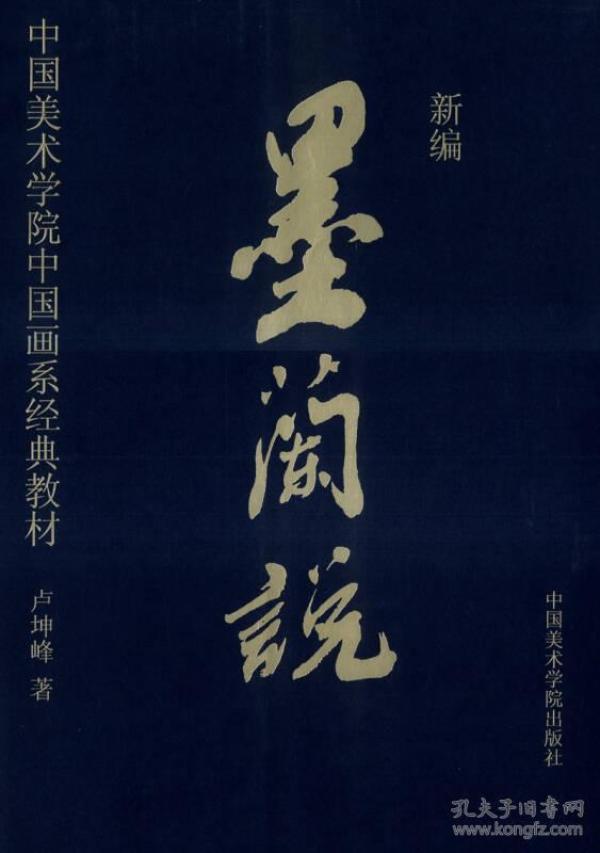 新编
墨蘭説
中国美术学院中国画系经典教材
卢坤峰 著
中国美术学院出版社
孔夫子旧书网
www.kongfz.com